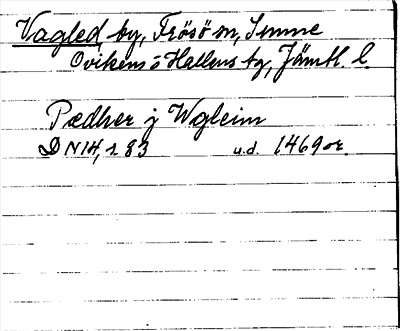 Vagled, by, Frösö sn, Sunne
Ovikens o Hallens tg, Jämtl. l.
Pædher j Wgleim
DN 14, s. 83 u.d. 1469 or.